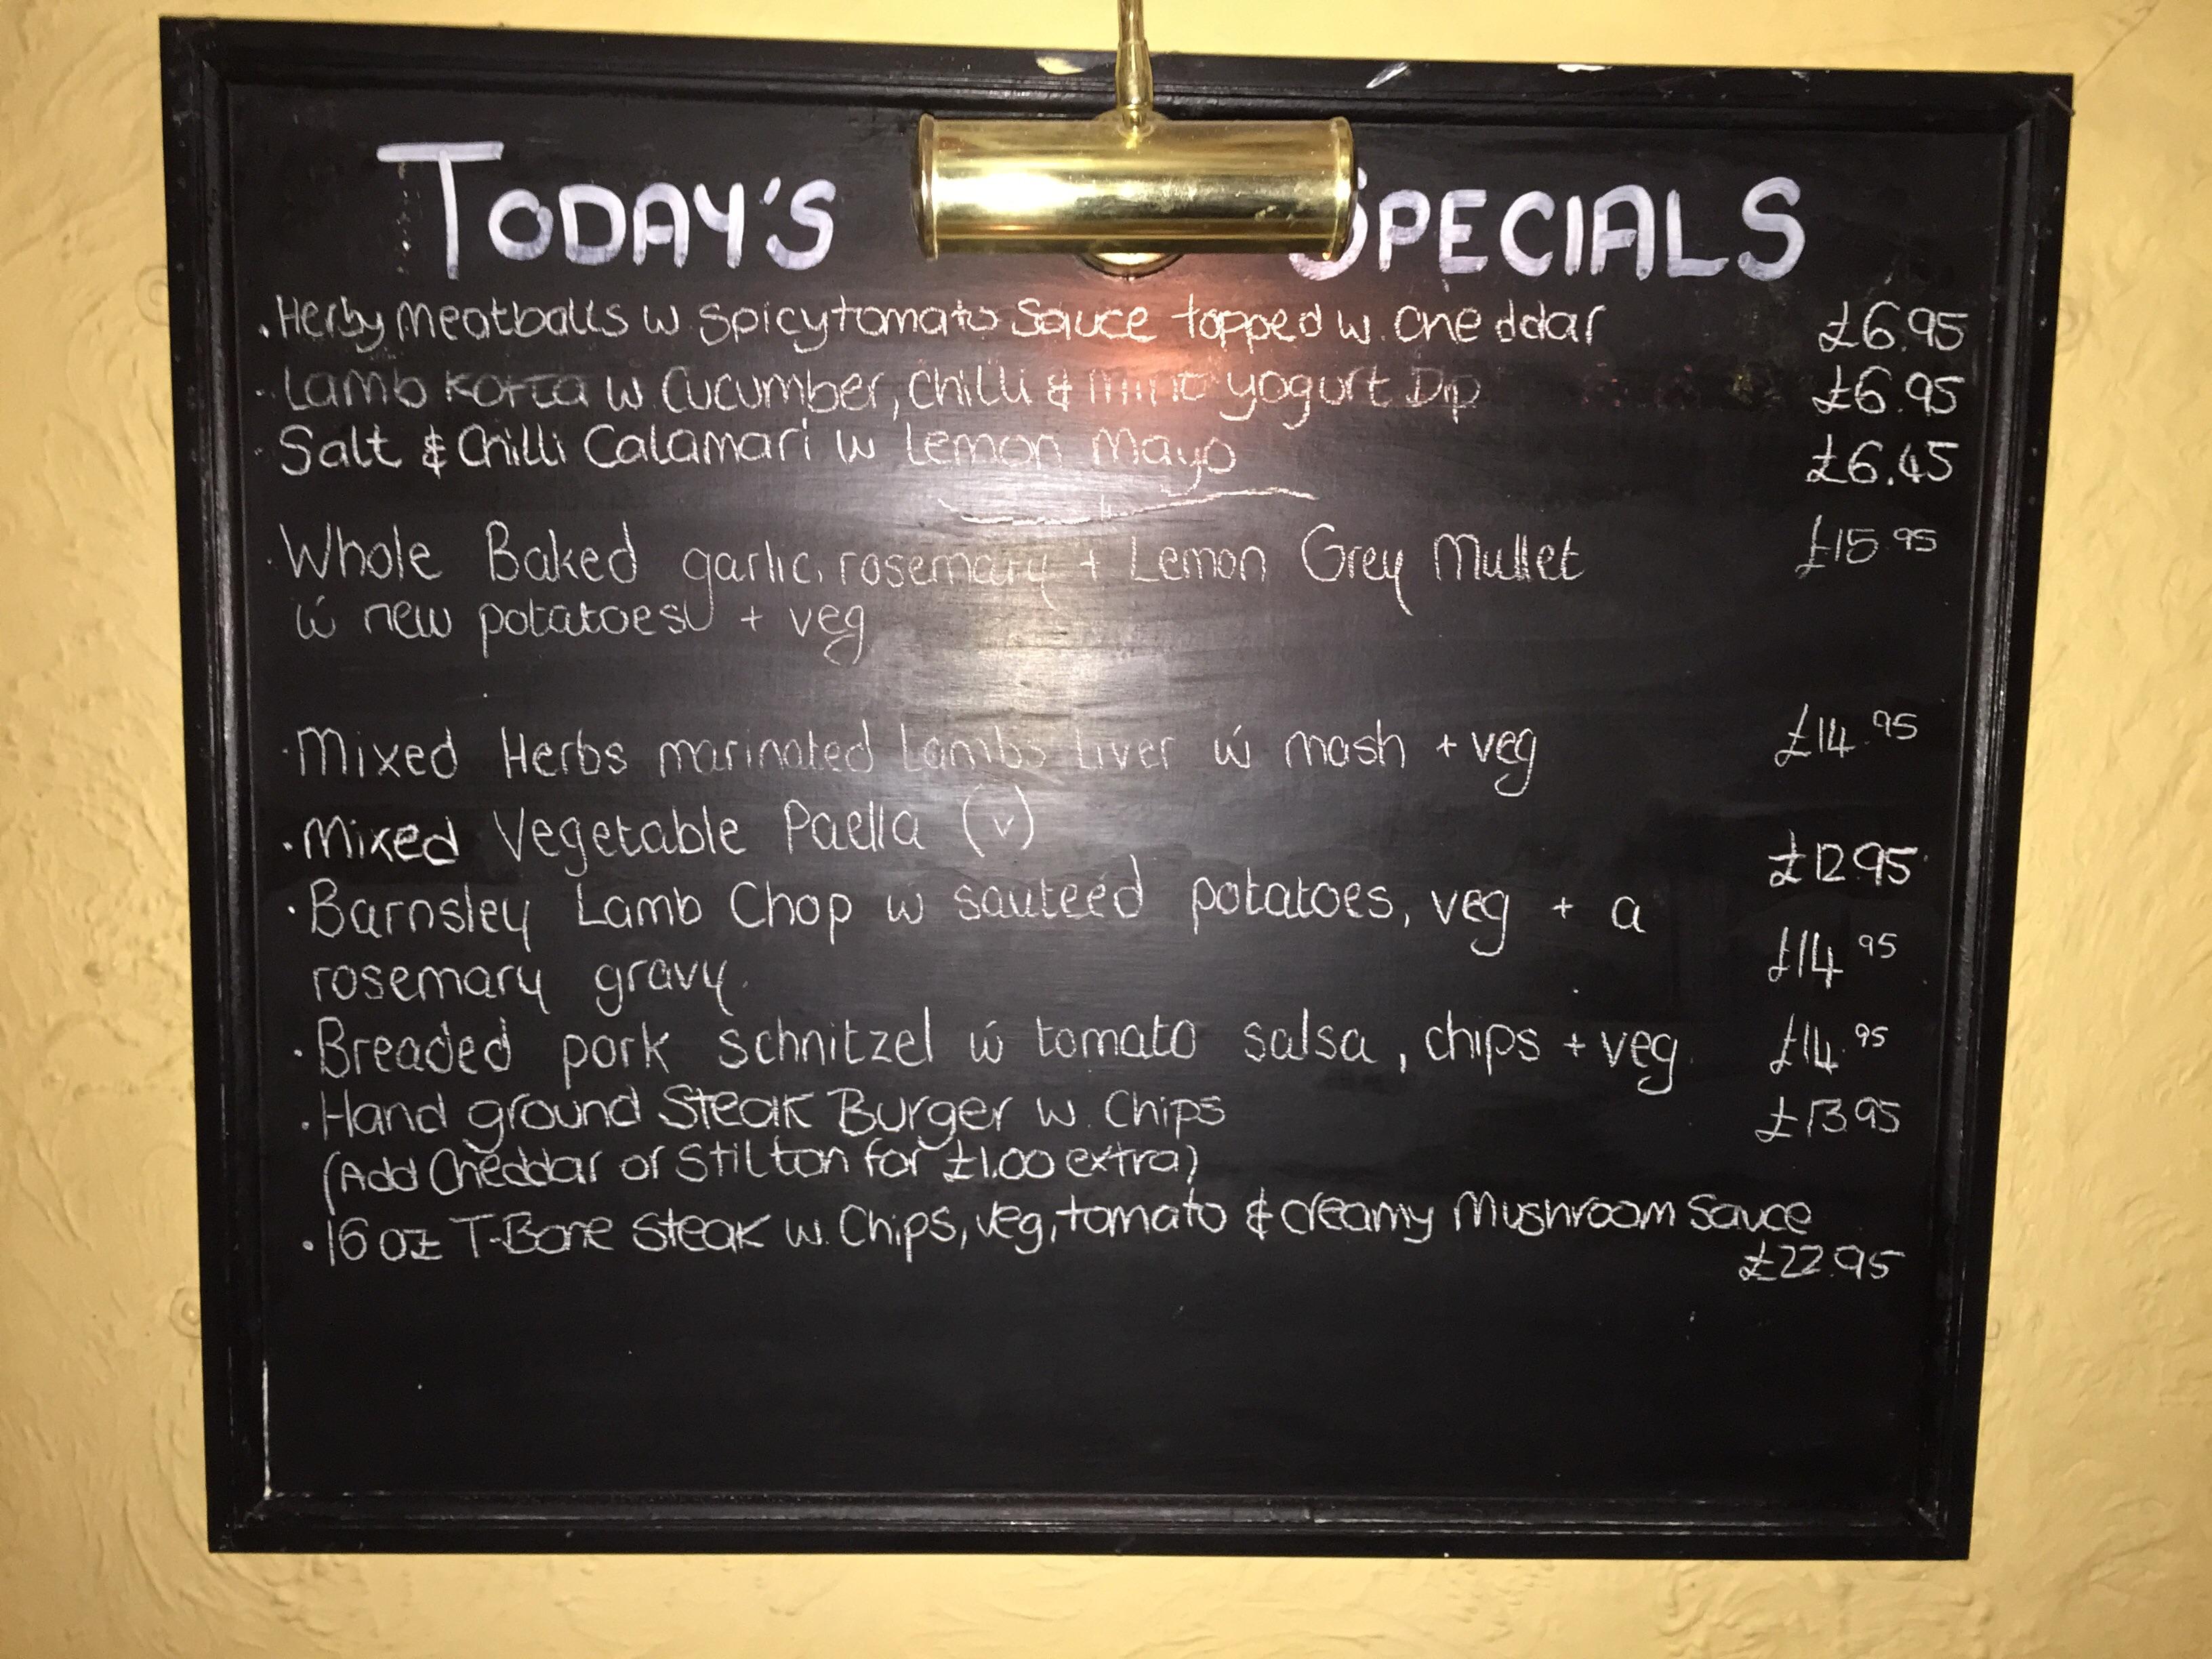 TODAY'S SPECIALS
. Herby meatballs w spicy tomato Sauce topped w. Cheddar £6.95
. Lamb Kofta w Cucumber, Chilli & mint yogurt Dip £6.95
. Salt & Chilli Calamari w Lemon Mayo £6.45
. Whole Baked garlic, rosemary + Lemon Grey Mullet £15.95
w new potatoes + veg
. Mixed Herbs marinated Lambs Liver w mash + veg £14.95
. Mixed Vegetable Paella (v) £12.95
. Barnsley Lamb Chop w sauteéd potatoes, veg + a
rosemary gravy. £14.95
. Breaded pork schnitzel w tomato salsa, chips + veg. £14.95
. Hand ground Steak Burger w. Chips £13.95
(Add Cheddar or Stilton for £1.00 extra)
. 16 oz T-Bone Steak w. Chips, veg, tomato & creamy Mushroom Sauce
£22.95